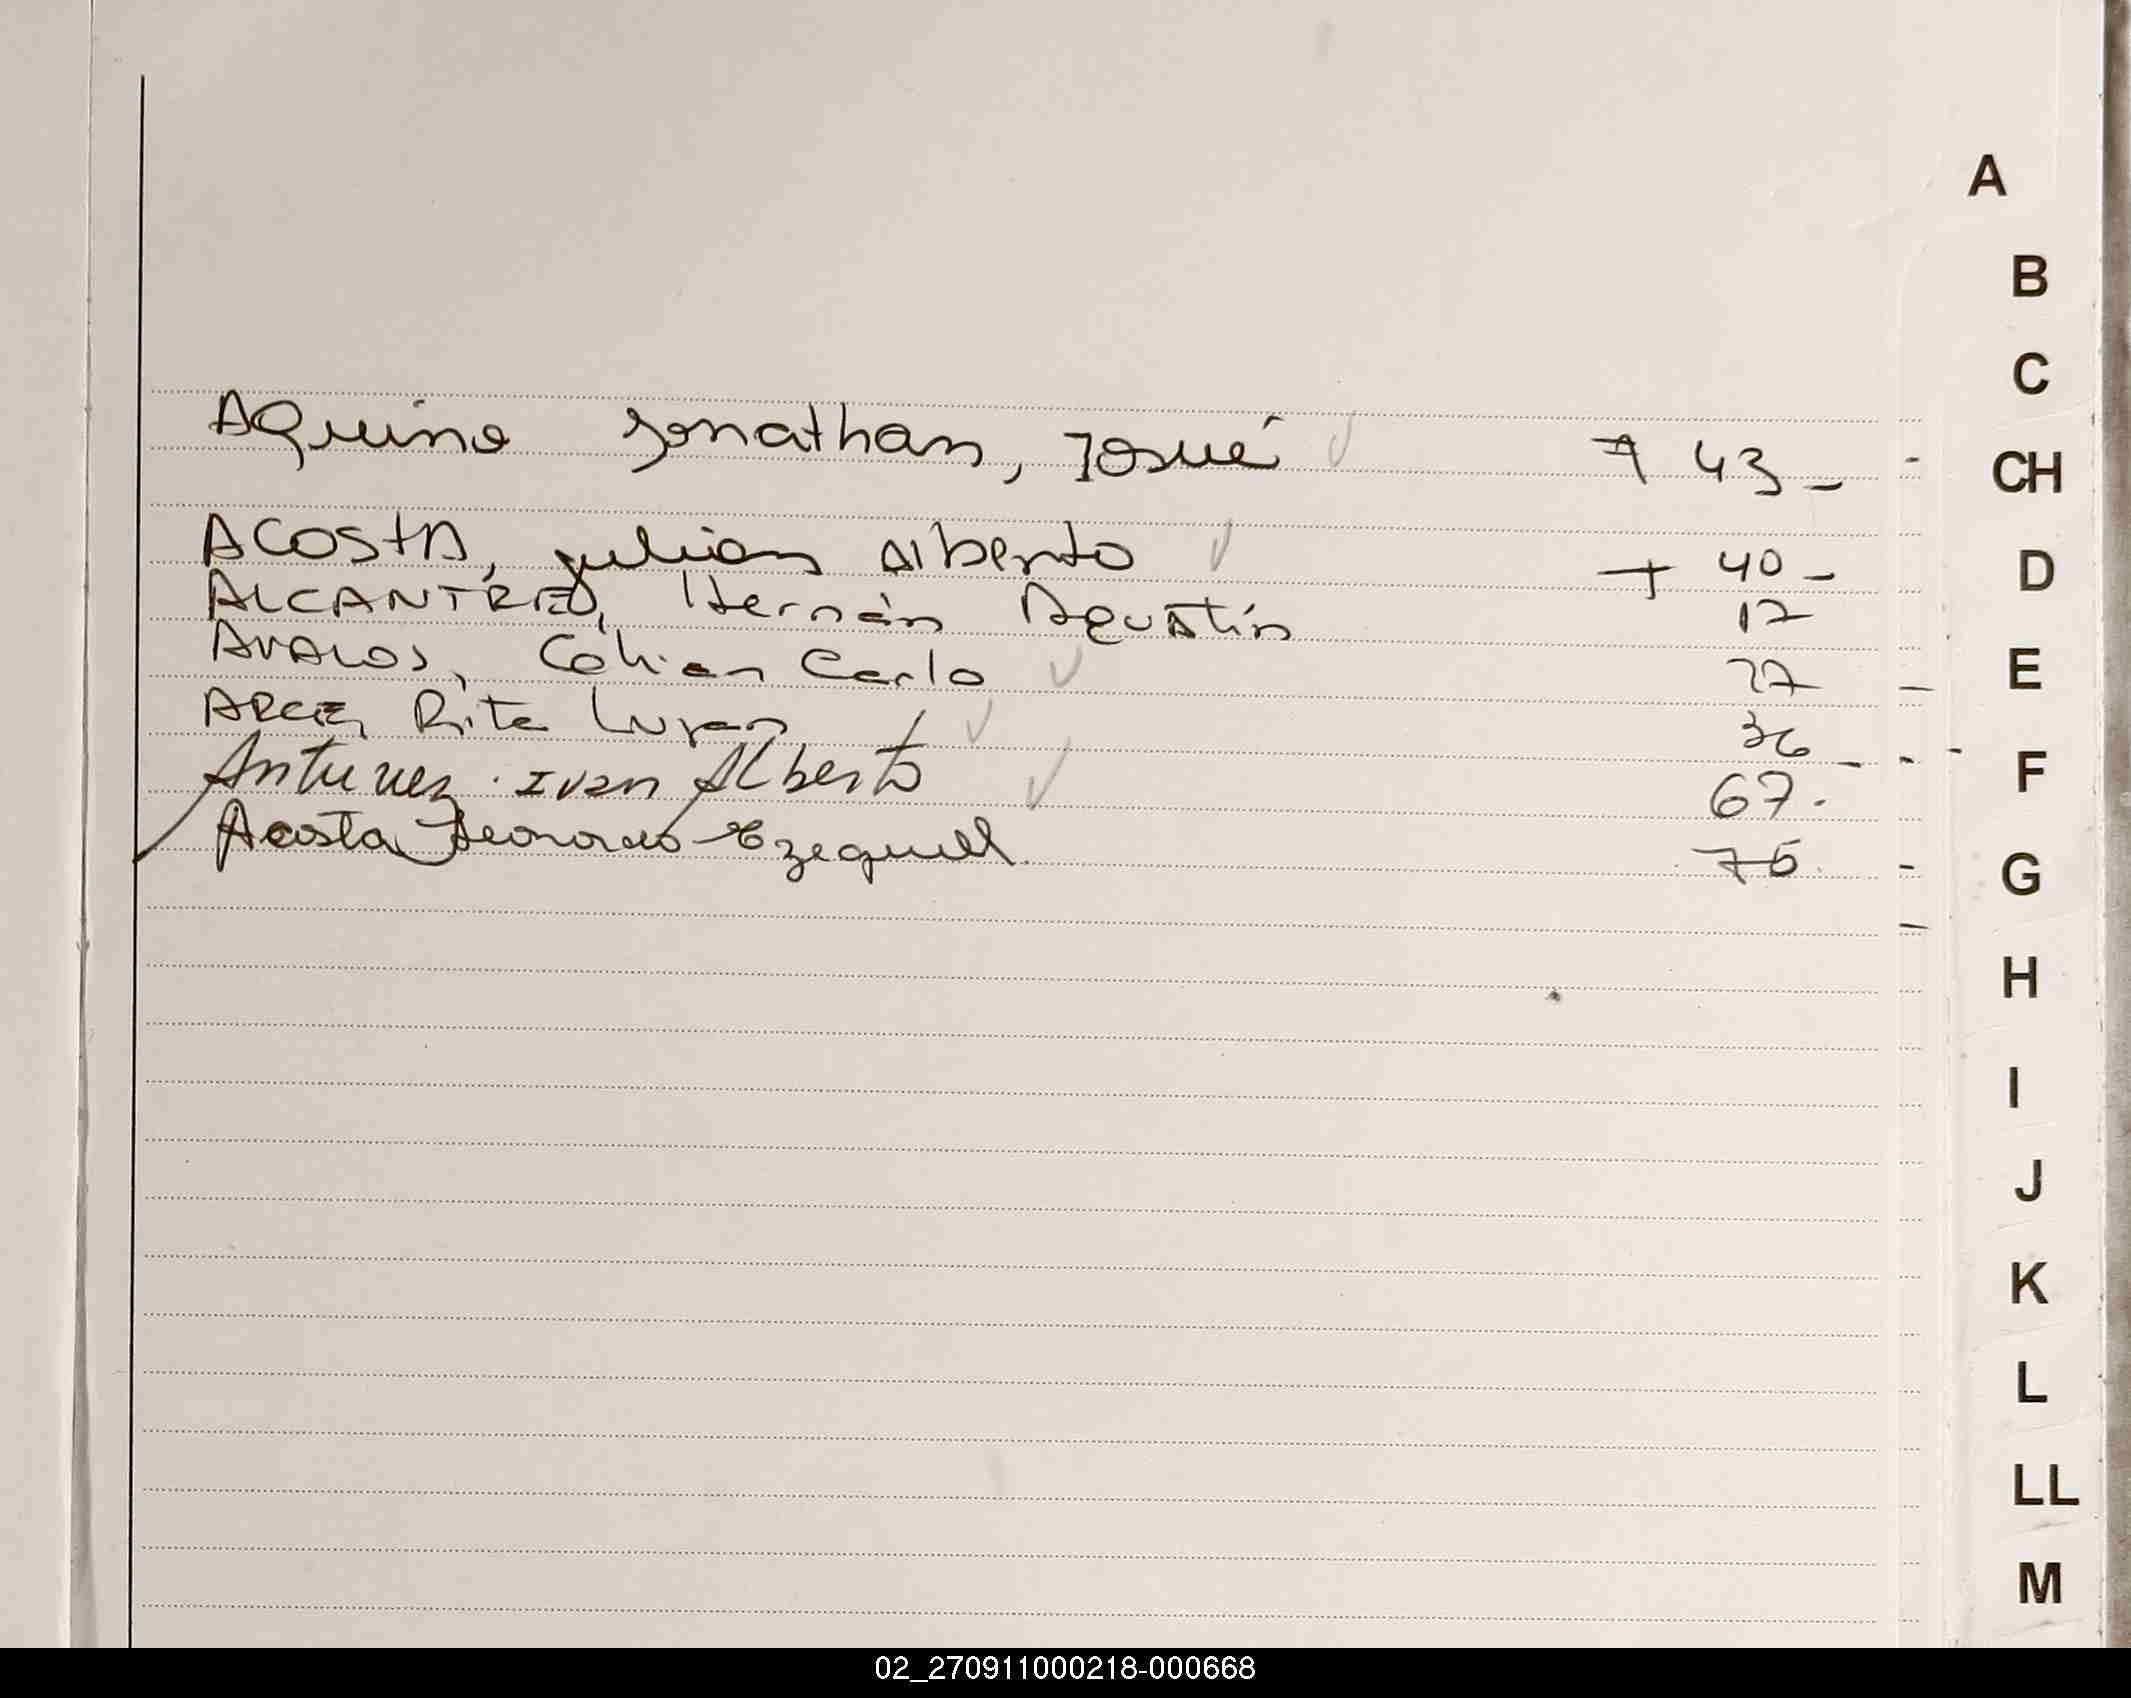 A
B
C
AQuino Jonathan, Josué 43 -
CH
ACOSTA, Julian Alberto 40 -
D
ALCANTRE, Hernán Agustín 17
AVALOS, Carlo 27
E
ARCE, Rita Lujan 36
Antunez Ivan Alberto 67.
F
Acosta Leonardo Ezequiel 75.
G
H
I
J
K
L
LL
M
02_270911000218-000668